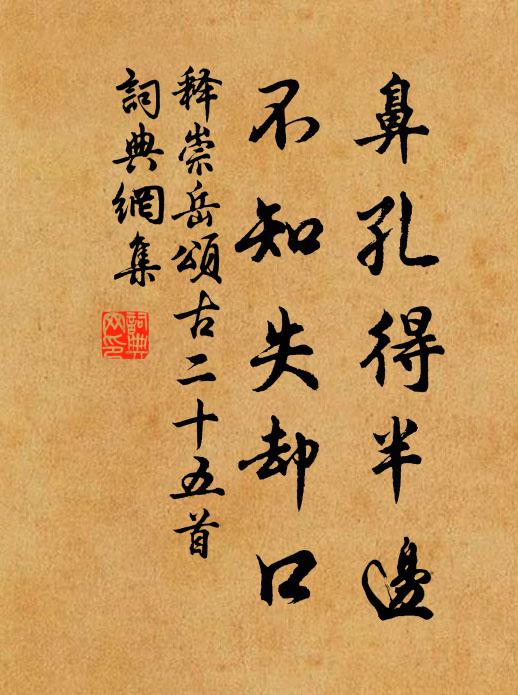 鼻孔得半邊
不知失却口
释崇岳頌古二十五首
詞典網集
詞典網印